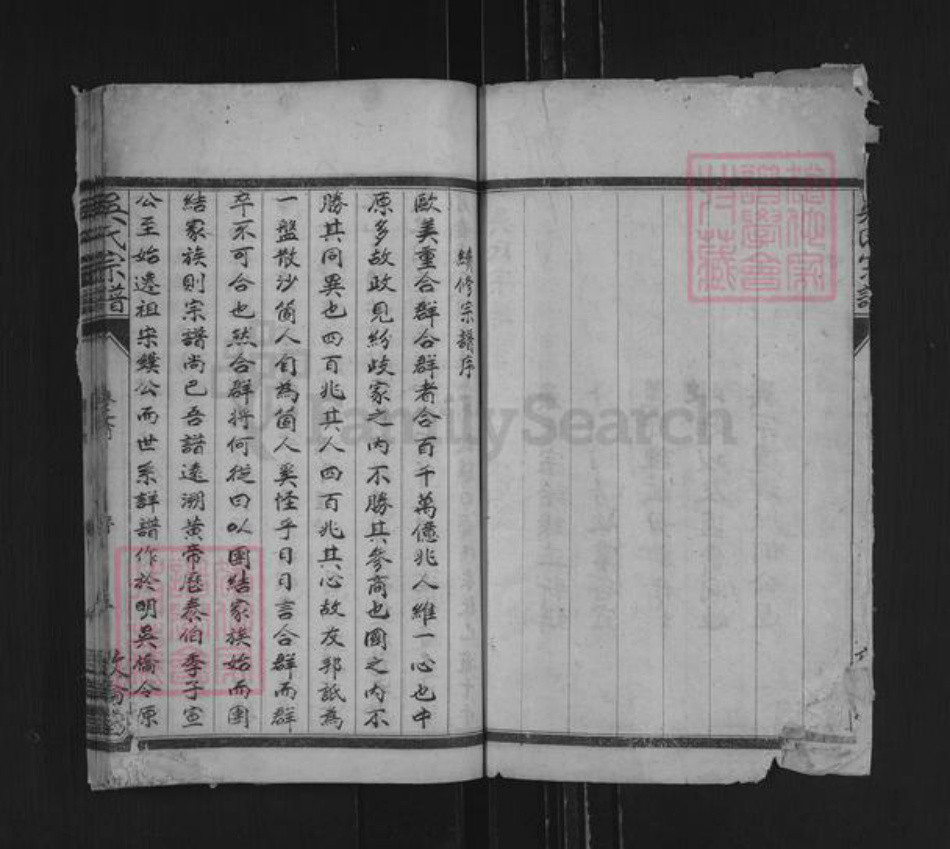 續修宗譜序
歐美重合群合群者合百千萬億兆人維一心也中
原多故政見紛歧家之內不勝其參商也國之內不
勝其同異也四百兆其人四百兆其心故友邦詆為
一盤散沙箇人自為箇人奚怪乎日日言合群而群
卒不可合也然合群將何從曰以團結家族始而團
結家族則宗譜尚已吾譜遠溯黃帝歷泰伯季子宣
公至始遷祖宋繽公而世系詳譜作於明吳橋令原
吳氏宗譜
序
FamilySearch